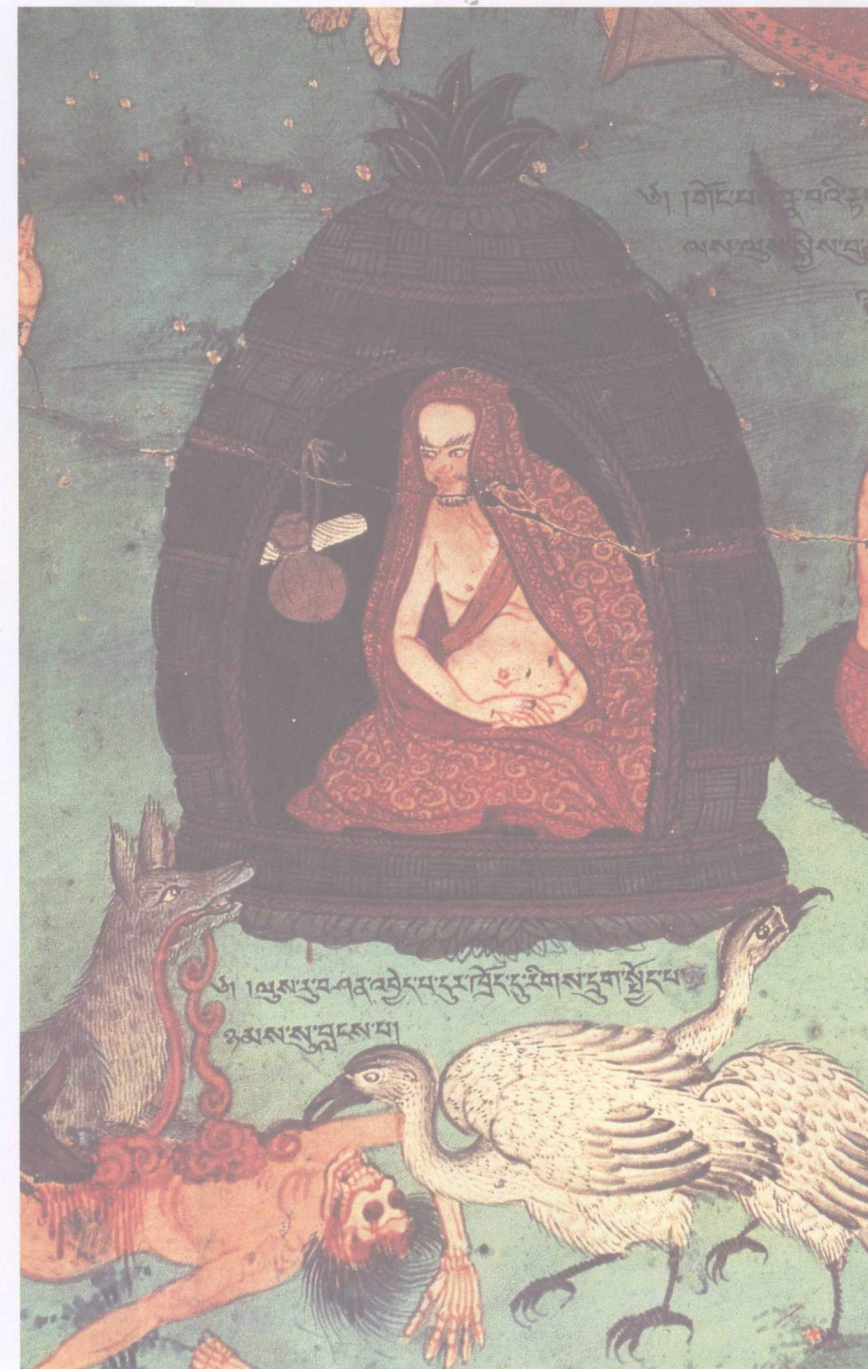 ༄། །གོང་པ་
ལས་ལུས་ཀྱིས་
༄། །ལུས་རུ་བ་ཤན་འབྱེད་པ་དུར་ཁྲོད་དུ་རིགས་དྲུག་སྤྱོད་པ་
ཉམས་སུ་བླངས་པ།